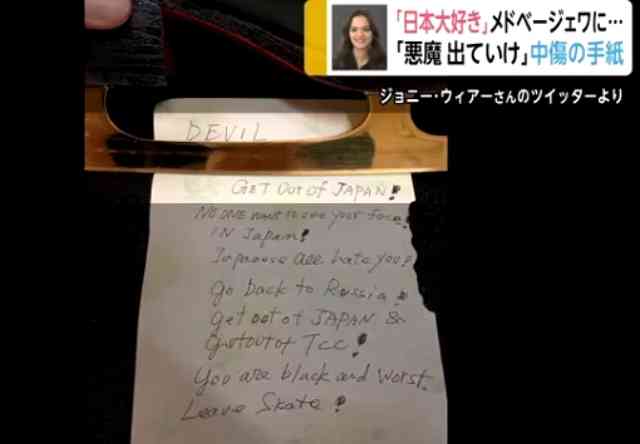 「日本大好き」メドベージェワに…
「悪魔 出ていけ」中傷の手紙
ジョニー・ウィアーさんのツイッターより
DEVIL
GET OUT OF JAPAN!
NO ONE WANT to see your face!
IN Japan!
Japanese are hate you!
Go back to Russia!
get out of JAPAN &
get out of TCC!
You are black and worst.
Leave Skate!